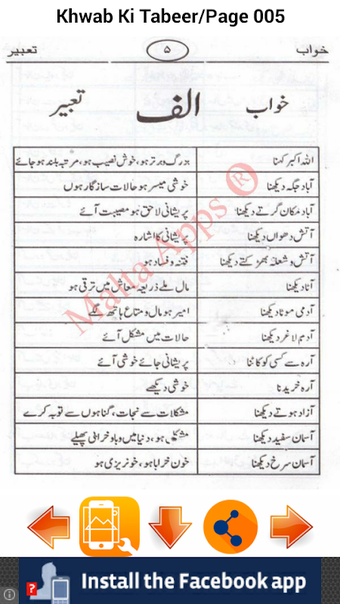 Khwab Ki Tabeer/Page 005
خواب ۵ تعبیر
خواب الف تعبیر
اللہ اکبر کہنا بزرگ و برتر ہو، خوش نصیب ہو، مرتبہ بلند ہو جائے
آباد جگہ دیکھنا خوشی میسر ہو حالات سازگار ہوں
آباد مکان گرتے دیکھنا پریشانی لاحق ہو مصیبت آئے
آتش دھواں دیکھنا پریشانی کا اشارہ
آتش و شعلہ بھڑکتے دیکھنا فتنہ و فساد ہو
آٹا دیکھنا مال ملے ذریعہ معاش میں ترقی ہو
آدمی موٹا دیکھنا امیر ہو مال و متاع ہاتھ لگے
آدم لاغر دیکھنا حالات میں مشکل آئے
آرہ سے کسی کو کاٹنا پریشانی جائے خوشی آئے
آرہ خریدنا خوشی دیکھے
آزاد ہوتے دیکھنا مشکلات سے نجات، گناہوں سے توبہ کرے
آسمان سفید دیکھنا مشکل ہو، دنیا میں وبا و خرابی پھیلے
آسمان سرخ دیکھنا خون خرابا ہو، خونریزی ہو
Malta Apps ®
Install the Facebook app